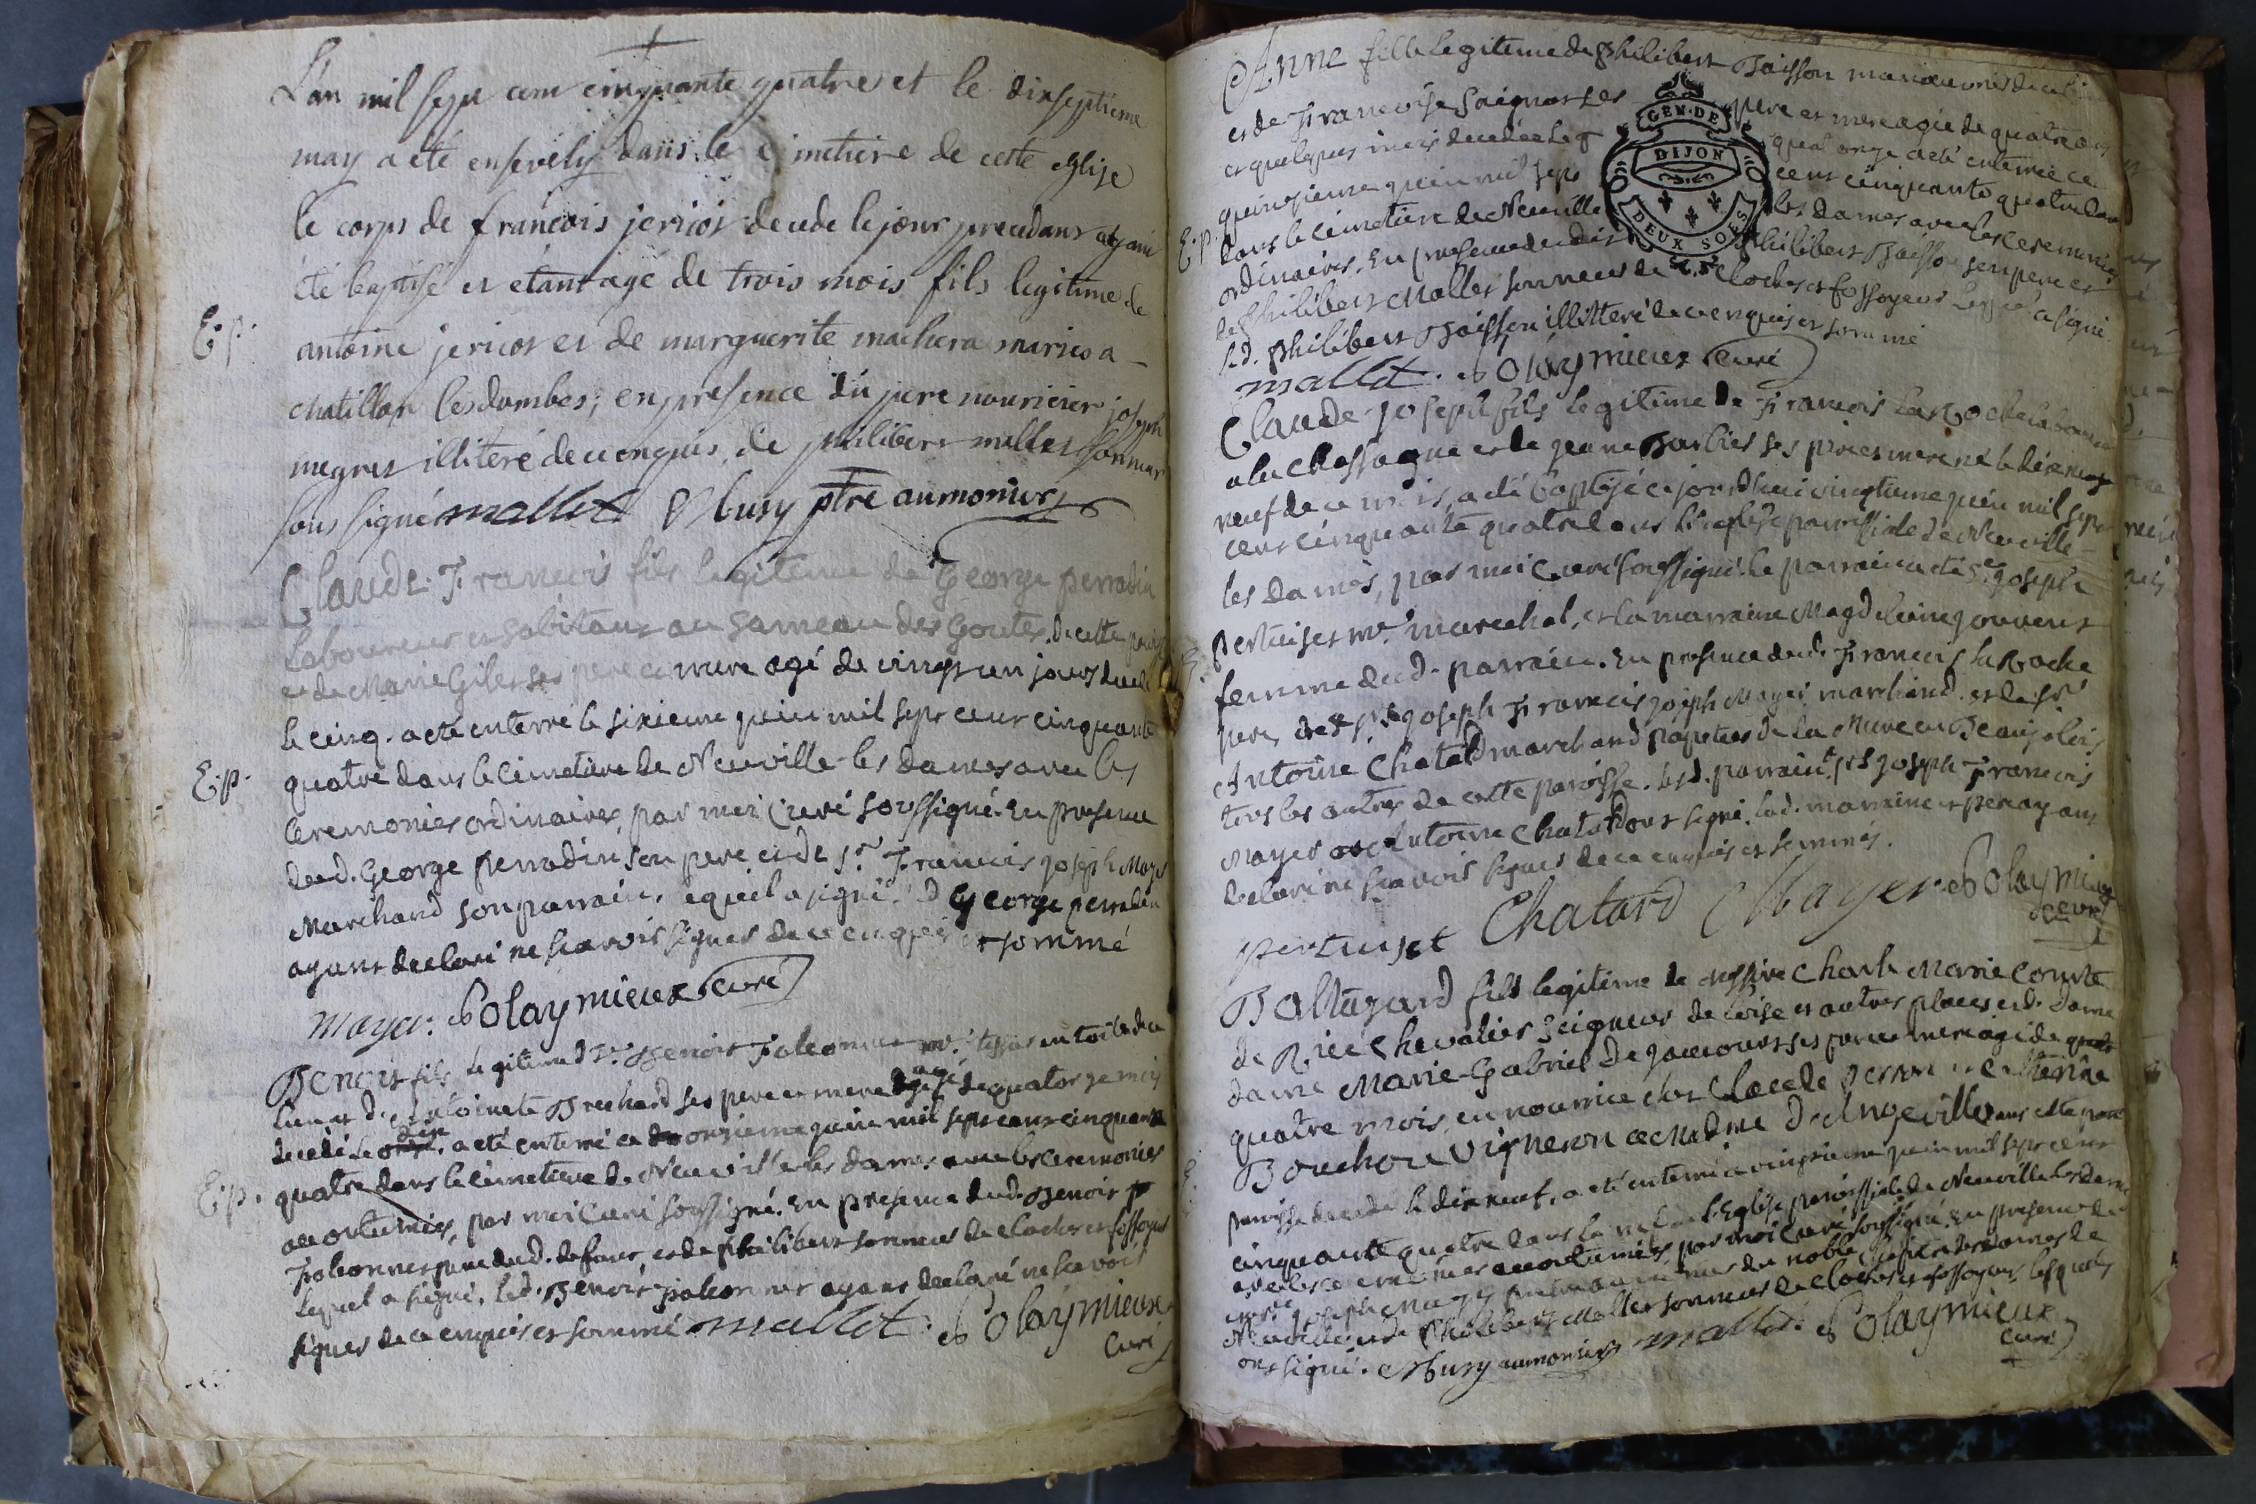 L'an mil sept cent cinquante quatre et le dixseptieme
may a eté ensevely dans le cimetiere de cette eglise
le corps de françois jericot decede le jour precedant ayant
été baptisé et étant agé de trois mois fils legitime de
E.p.
antoine jericot et de marguerite machera mariés a
chatillon les dombes; en presence du pere nouricier joseph
megret illiteré de ce enquis, de philibert mallet sonneur
sous signé mallet Bussy ptre aumonier
Claude François fils legitime de George perradin
laboureur et habitant au hameau des Goutes, de cette paroisse
et de Marie Gilet ses pere et mere agé de vingt un jours decedé
le cinq. a eté enterré le sixieme juin mil sept cent cinquante
E.p.
quatre dans le cimetiere de Neuville les dames avec les
ceremonies ordinaires, par moi Curé soussigné. En presence
dud. George perradin son pere et de sr. François joseph Mayer
Marchand son parrain, lequel a signé. led George perradin
ayant declaré ne scavoir signer de ce enquis et sommé
mayer. Polaymieux curé
Benoit fils legitime d. Benoit Falconnet me. tissier en toile de ce
lieu et d. Antoinete Brechard ses pere et mere agé de quatorze mois
decedé le dix. a eté enterré ce onzieme juin mil sept cent cinquante
E.p.
quatre dans le cimetiere de Neuville les dames avec les ceremonies
accoutumées, par moi Curé soussigné. En presence dud. Benoit
Falconnet pere dud. defunt, et de philibert sonneur de cloches et fossoyeur
lequel a signé, led. Benoit Falconnet ayant declaré ne scavoir
signer de ce enquis et sommé mallet. Polaymieux
Curé
Anne fille legitime de Philibert Baisson manoeuvrier de ce
et de Françoise Saignor ses pere et mere agée de quatre ans
et quelques mois decedée le quatorze a eté enterrée ce
quinzieme juin mil sept cent cinquante quatre dans
E.p.
dans le cimetiere de Neuville les dames avec les ceremonies
ordinaires. En presence dudit Philibert Baisson son pere et
de Philibert Mallet sonneur de Cloches et fossoyeur lequel a signé
led. Philibert Baisson illitteré de ce enquis et sommé
mallet. Polaymieux Curé
GEN. DE
DIJON
DEUX SOLS
Claude joseph fils legitime de François LaRoche laboureur
a la Chassagne et de jeane Barbier ses pere et mere né le dixneuf
neuf de ce mois, a eté baptisé ce jourd'hui vingtieme juin mil sept
cent cinquante quatre dans l'eglise paroissiale de Neuville
les dames, par moi Curé soussigné. le parrain a eté Sr. joseph
pertuiset me. marechal, et la marraine Magdelaine jouvent
femme dud. parrain. En presence dud. François LaRoche
pere, de sr. joseph François joseph Mayer marchand. et de sr.
Antoine Chatard marchand papetier de La Mure en Beaujolois
tous les autres de cette paroisse. les d. parrain, sr joseph François
Mayer et Antoine Chatard ont signé. lad. marraine et pere ayant
declaré ne scavoir signer de ce enquis et sommés.
pertuiset Chatard Mayer. Polaymieux
curé
Baltazard fils legitime de Messire Charle Marie Comte
de Riccé Chevalier Seigneur de Loise et autres places et de Dame
dame Marie-Gabriel De jaucourt ses pere et mere agé de quatre
quatre mois, en nourrice chez Claude perron et Catherine
Bouchoux Vigneron de Madme D'Angeville dans cette paroisse
paroisse decedé le dixneuf, a eté enterré ce vingtieme juin mil sept cent
cinquante quatre dans la nef de l'Eglise paroissiale de Neuville les dames
avec les ceremonies accoutumées, par moi Curé soussigné, En presence de
Neuville et de Philibert Mallet sonneur de cloches et fossoyeur, lesquels
ont signé. Bussy aumonier mallet. Polaymieux
Curé